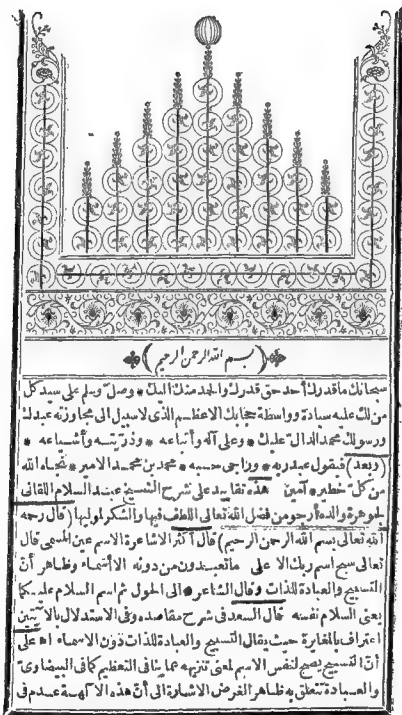 بسم الله الرحمن الرحيم
سبحانك ماقدرك أحد حق قدرك والحمد منك اليك * وصل وسلم على سيد كل
من لك عليه سيادة وواسطة حجابك الاعظم الذى لا سبيل الى مجاوزته عبدك
ورسولك محمد الدال عليك * وعلى آله وأتباعه * وذريته وأشياعه *
(وبعد) فيقول عبد ربه * وراجى حسبه * محمد بن محمد الامير * نجاه الله
من كل خطير * آمين هذه تقاييد على شرح الشيخ عبد السلام اللقانى
لجوهرة والده أرجو من فضل الله تعالى اللطف فيها والشكر لموليها (قال رحمه
الله تعالى بسم الله الرحمن الرحيم) قال أكثر الاشاعرة الاسم عين المسمى قال
تعالى سبح اسم ربك الاعلى ما تعبدون من دونه الا أسماء وظاهر أن
التسبيح والعبادة للذات وقال الشاعر * الى الحول ثم اسم السلام عليكما
يعنى السلام نفسه قال السعد فى شرح مقاصده وفى الاستدلال بالآيتين
اعتراف بالمغايرة حيث يقال التسبيح والعبادة للذات دون الاسماء اه على
أن التسبيح يصح لنفس الاسم بمعنى تنزيهه عما ينافى التعظيم كما فى البيضاوى
والعبادة تتعلق به ظاهرا لغرض الاشارة الى أن هذه الآلهة عدم فى